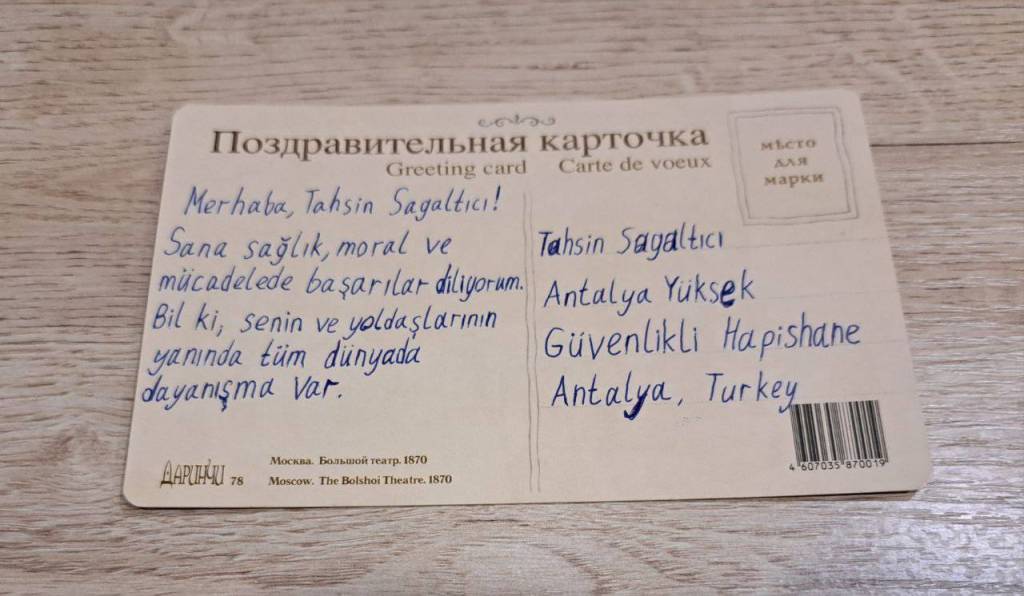 Поздравительная карточка
Greeting card Carte de voeux
мѣсто
для
марки
Merhaba, Tahsin Sagaltıcı!
Sana sağlık, moral ve
mücadelede başarılar diliyorum.
Bil ki, senin ve yoldaşlarının
yanında tüm dünyada
dayanışma var.
Tahsin Sagaltıcı
Antalya Yüksek
Güvenlikli Hapishane
Antalya, Turkey
ДАРИНЧИ 78
Москва. Большой театр. 1870
Moscow. The Bolshoi Theatre. 1870
4 607035 870019